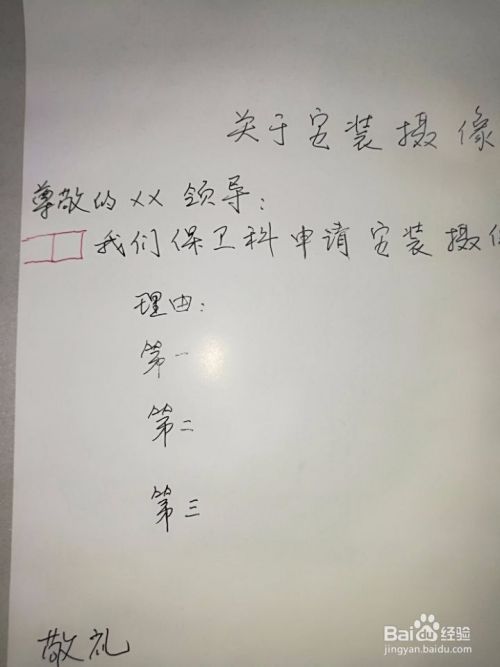 关于安装摄像
尊敬的XX领导:
我们保卫科申请安装摄
理由:
第一
第二
第三
敬礼
Baidu经验
jingyan.baidu.com